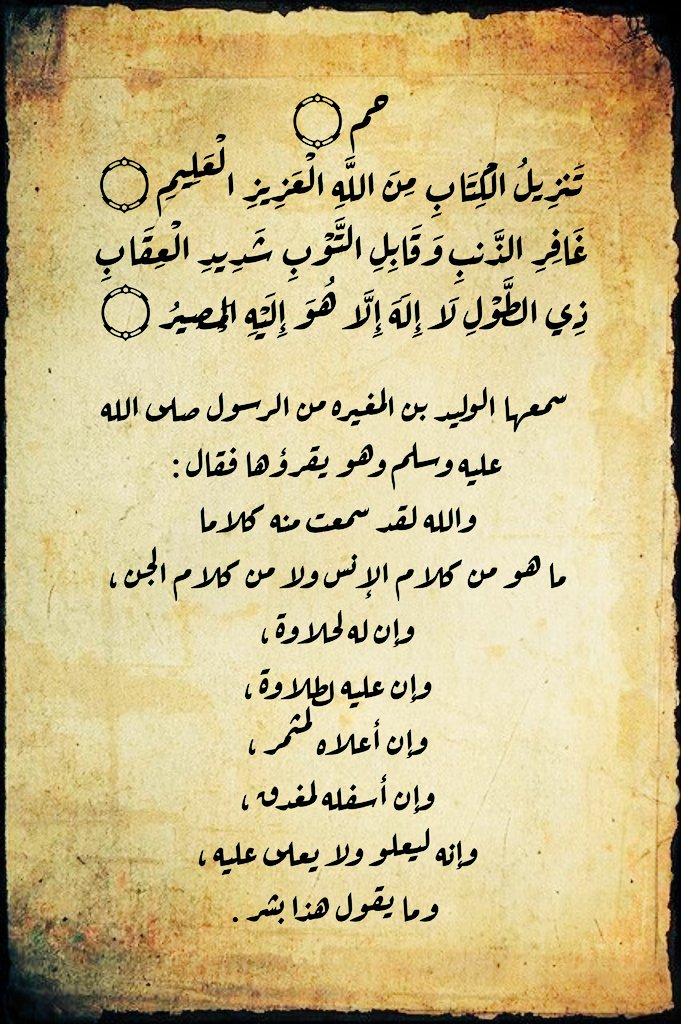 حم ۝
تَنزِيلُ الْكِتَابِ مِنَ اللَّهِ الْعَزِيزِ الْعَلِيمِ ۝
غَافِرِ الذَّنبِ وَقَابِلِ التَّوْبِ شَدِيدِ الْعِقَابِ
ذِي الطَّوْلِ لَا إِلَهَ إِلَّا هُوَ إِلَيْهِ الْمَصِيرُ ۝
سمعها الوليد بن المغيره من الرسول صلى الله
عليه وسلم وهو يقرؤها فقال :
والله لقد سمعت منه كلاما
ما هو من كلام الإنس ولا من كلام الجن ،
وإن له لحلاوة ،
وإن عليه لطلاوة ،
وإن أعلاه لمثمر ،
وإن أسفله لمغدق ،
وإنه ليعلو ولا يعلى عليه ،
وما يقول هذا بشر .